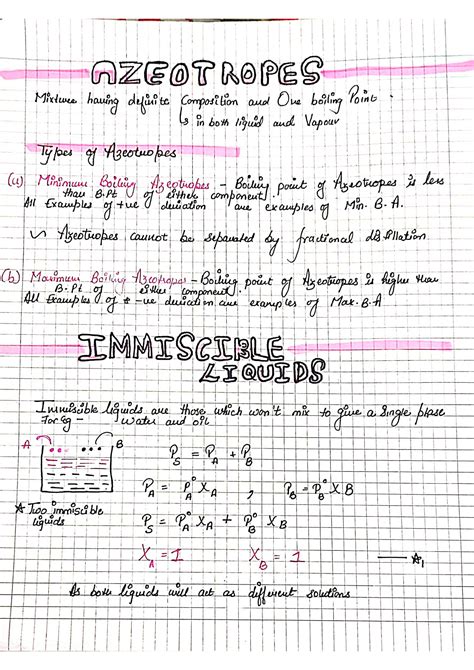 AZEOTROPES
Mixture having definite Composition and One boiling Point.
↳ in both liquid and Vapour
Types of Azeotropes
(a) Minimum Boiling Azeotropes - Boiling point of Azeotropes is less
than B.Pt of either component
All Examples of +ve deviation are examples of Min. B.A.
Azeotropes cannot be separated by fractional distillation.
(b) Maximum Boiling Azeotrope - Boiling point of Azeotropes is higher than
B.Pt of either component
All Examples of -ve deviation are examples of Max. B.A
IMMISCIBLE
LIQUIDS
Immisible liquids are those which won't mix to give a single phase
For eg - Water and oil
A B
P_S = P_A + P_B
P_A = P°_A X_A , P_B = P°_B X_B
★ Two immiscible
liquids
P_S = P°_A X_A + P°_B X_B
X_A = 1 X_B = 1 ★1
As both liquids will act as different solutions